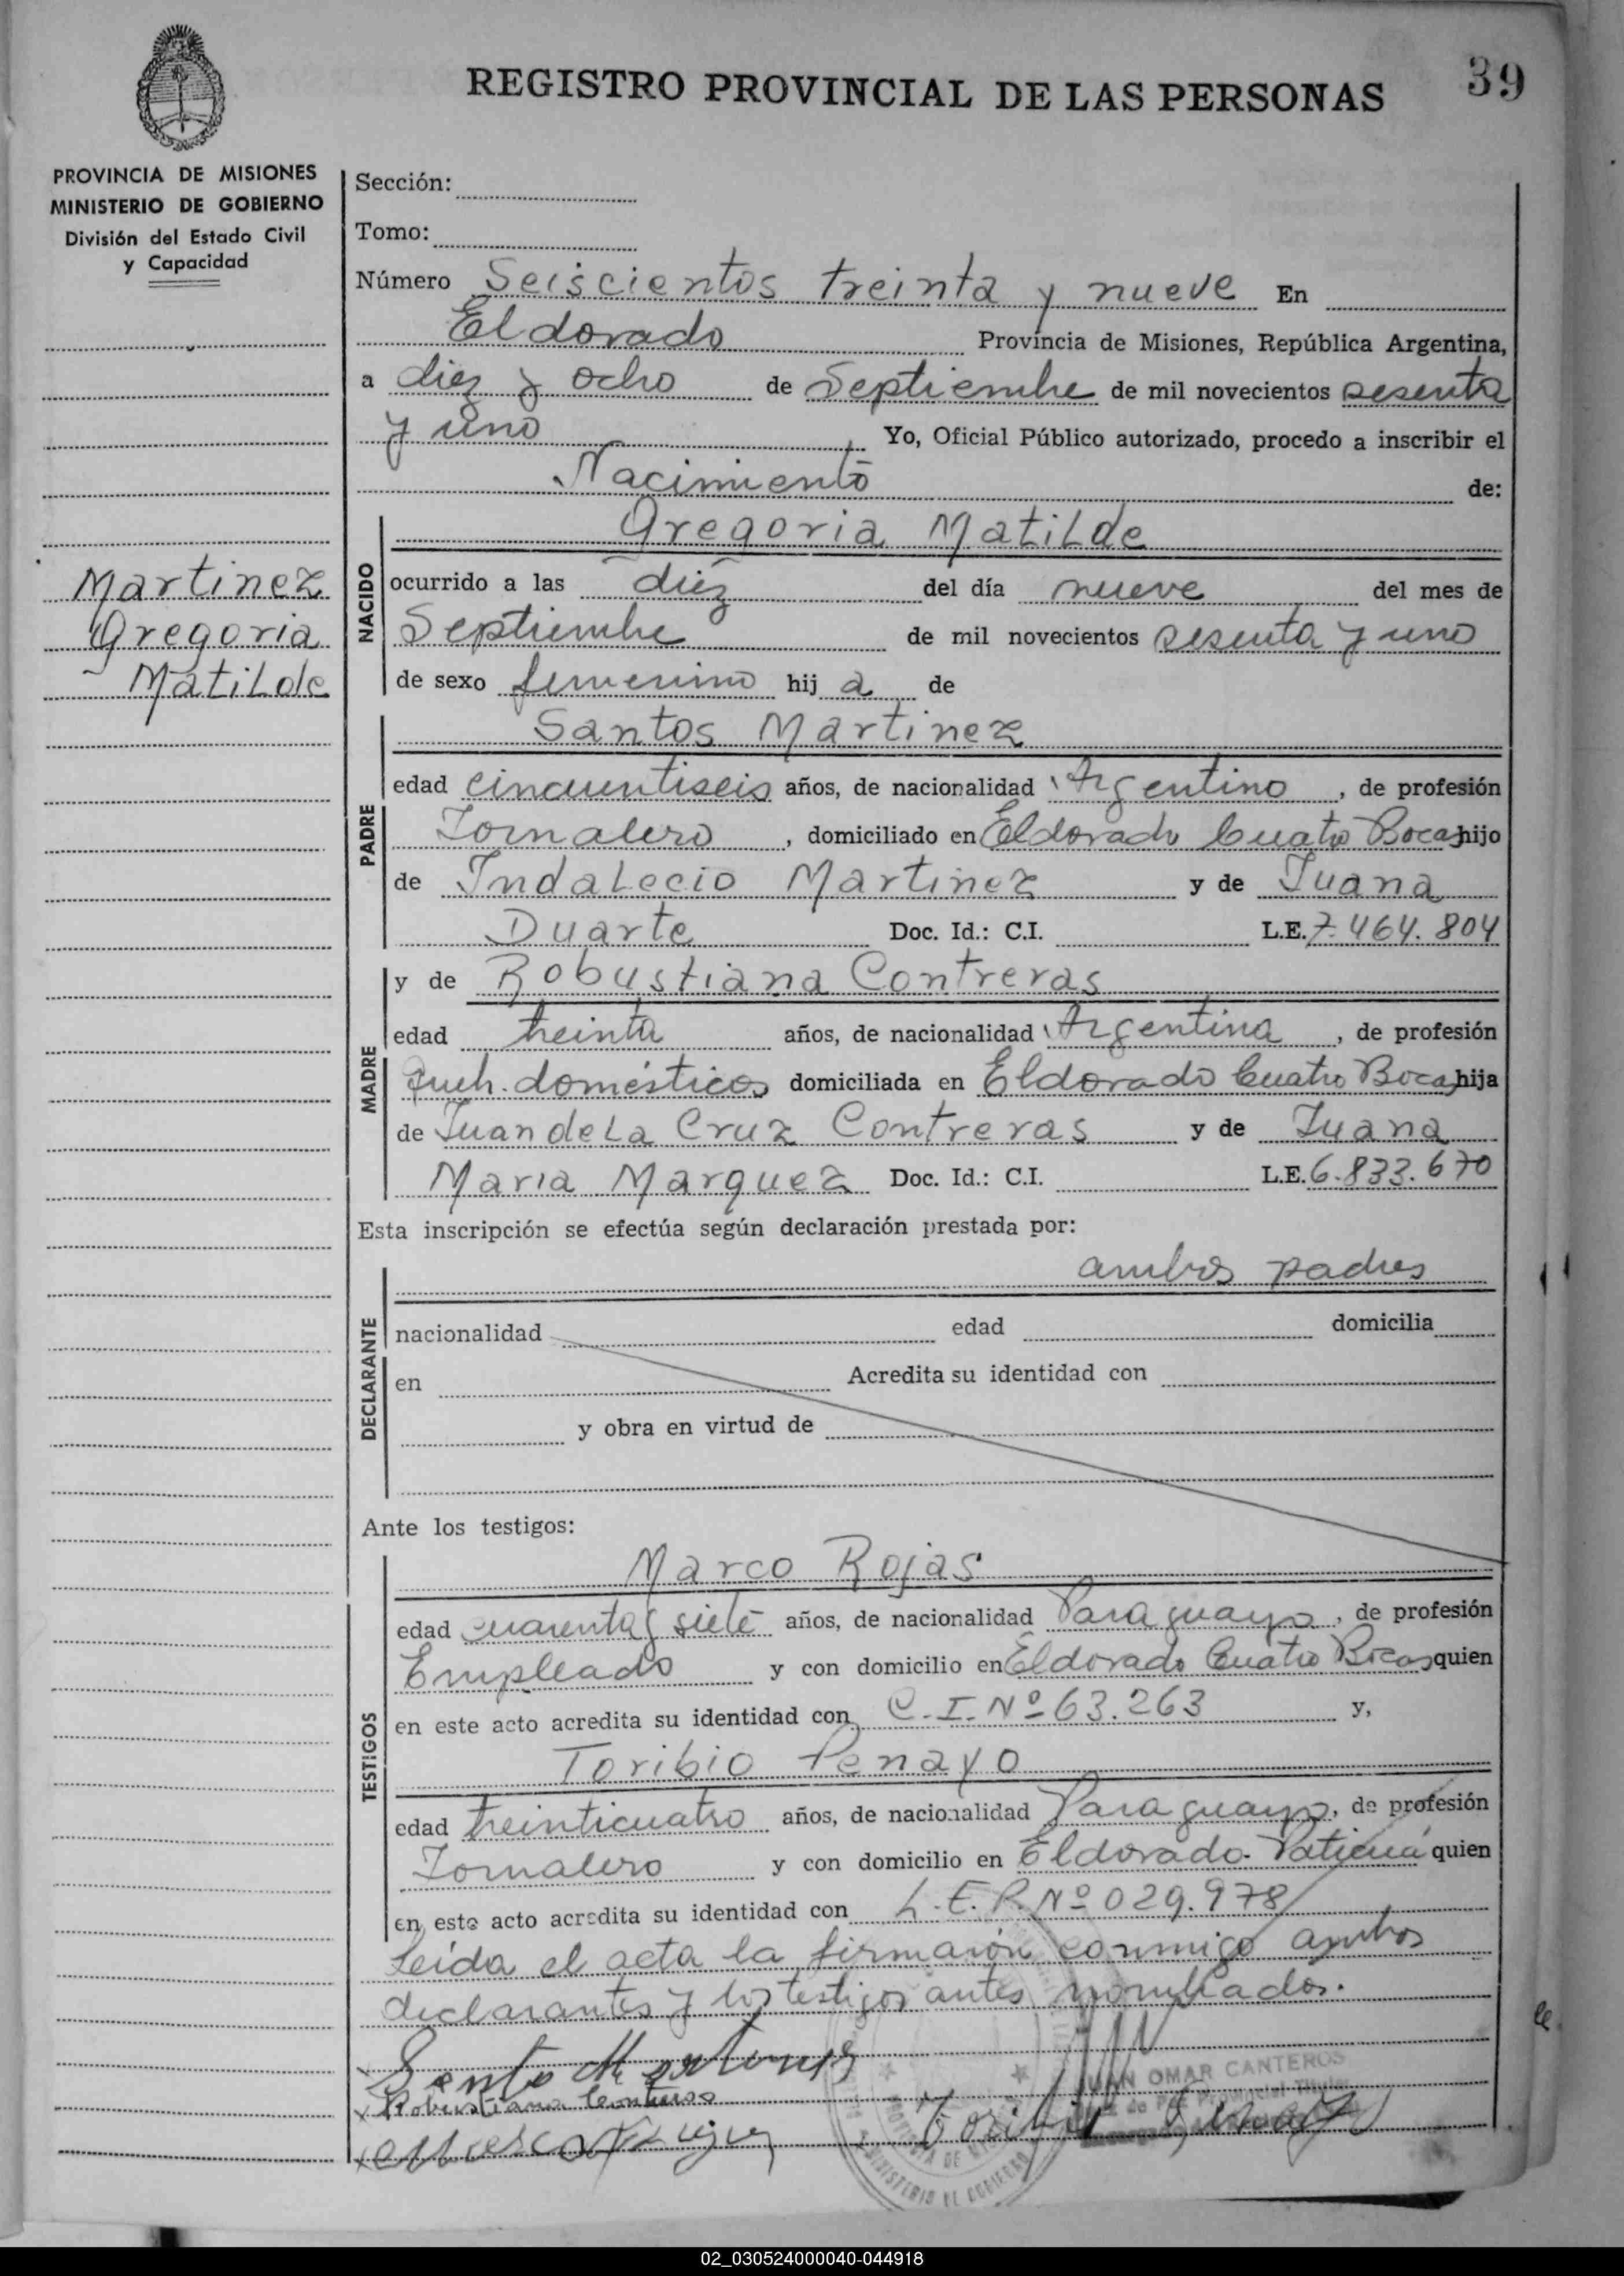 39
REGISTRO PROVINCIAL DE LAS PERSONAS
PROVINCIA DE MISIONES
MINISTERIO DE GOBIERNO
División del Estado Civil
y Capacidad
Martinez
Gregoria
Matilde
Sección:
Tomo:
Número Seiscientos treinta y nueve En
Eldorado Provincia de Misiones, República Argentina,
a diez y ocho de Septiembre de mil novecientos sesenta
y uno Yo, Oficial Público autorizado, procedo a inscribir el
Nacimiento de:
NACIDO
Gregoria Matilde
ocurrido a las diez del día nueve del mes de
Septiembre de mil novecientos sesenta y uno
de sexo femenino hij a de
PADRE
Santos Martinez
edad cincuentiseis años, de nacionalidad Argentino, de profesión
Jornalero, domiciliado en Eldorado Cuatro Bocas hijo
de Indalecio Martinez y de Juana
Duarte Doc. Id.: C.I. L.E. 7.464.804
MADRE
y de Robustiana Contreras
edad treinta años, de nacionalidad Argentina, de profesión
Queh. domésticos domiciliada en Eldorado Cuatro Bocas hija
de Juan de La Cruz Contreras y de Juana
Maria Marquez Doc. Id.: C.I. L.E. 6.833.670
Esta inscripción se efectúa según declaración prestada por:
DECLARANTE
ambos padres
nacionalidad edad domicilia
en Acredita su identidad con
y obra en virtud de
Ante los testigos:
TESTIGOS
Marco Rojas
edad cuarenta y siete años, de nacionalidad Paraguayo, de profesión
Empleado y con domicilio en Eldorado Cuatro Bocas quien
en este acto acredita su identidad con C.I. Nº 63.263 y,
Toribio Penayo
edad treinticuatro años, de nacionalidad Paraguayo, de profesión
Jornalero y con domicilio en Eldorado-Patiená quien
en este acto acredita su identidad con L.E.P. Nº 029.978
Leída el acta la firmaron conmigo ambos
declarantes y los testigos antes nombrados.
Santo Martinez
JUAN OMAR CANTEROS
Robustiana Contreras
MINISTERIO DE GOBIERNO
02_030524000040-044918